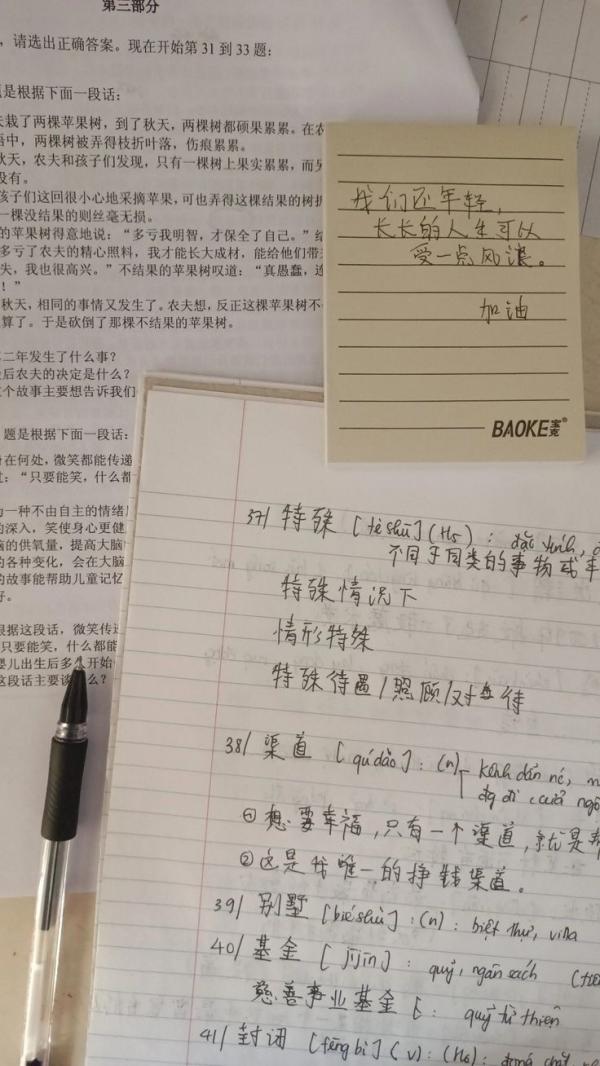 第三部分
，请选出正确答案。现在开始第 31 到 33 题：
是根据下面一段话：
栽了两棵苹果树，到了秋天，两棵树都硕果累累。在农
中，两棵树被弄得枝折叶落，伤痕累累。
秋天，农夫和孩子们发现，只有一棵树上果实累累，而另
没有。
孩子们这回很小心地采摘苹果，可也弄得这棵结果的树折
一棵没结果的则丝毫无损。
的苹果树得意地说：“多亏我明智，才保全了自己。”结
多亏了农夫的精心照料，我才能长大成材，能给他们带
夫，我也很高兴。”不结果的苹果树叹道：“真愚蠢，连
！”
秋天，相同的事情又发生了。农夫想，反正这棵苹果树不
算了。于是砍倒了那棵不结果的苹果树。
二年发生了什么事？
后农夫的决定是什么？
个故事主要想告诉我们
题是根据下面一段话：
在何处，微笑都能传递
：“只要能笑，什么都
为一种不由自主的情绪
的深入，笑使身心更健
脑的供氧量，提高大脑
的各种变化，会在大脑
的故事能帮助儿童记忆
好。
根据这段话，微笑传
只要能笑，什么都能
婴儿出生后多 开始
这段话主要谈 么？
我们还年轻，
长长的人生可以
受一点风浪。
加油
BAOKE 宝克®
37/ 特殊 [tèshū] (H5) : đặc
不同于同类的事物或
特殊情况下
情形特殊
特殊待遇/照顾/对待
38/ 渠道 [qúdào] : (n) kênh dẫn nc,
đg đi, cửa ngõ
① 想要幸福，只有一个渠道，就是
② 这是我唯一的挣钱渠道。
39/ 别墅 [biéshù] : (n) : biệt thự, villa
40/ 基金 [jījīn] : quỹ, ngân sách
慈善事业基金 [ : quỹ từ thiện
41/ 封闭 [fēngbì] (v) : (H6) : đóng